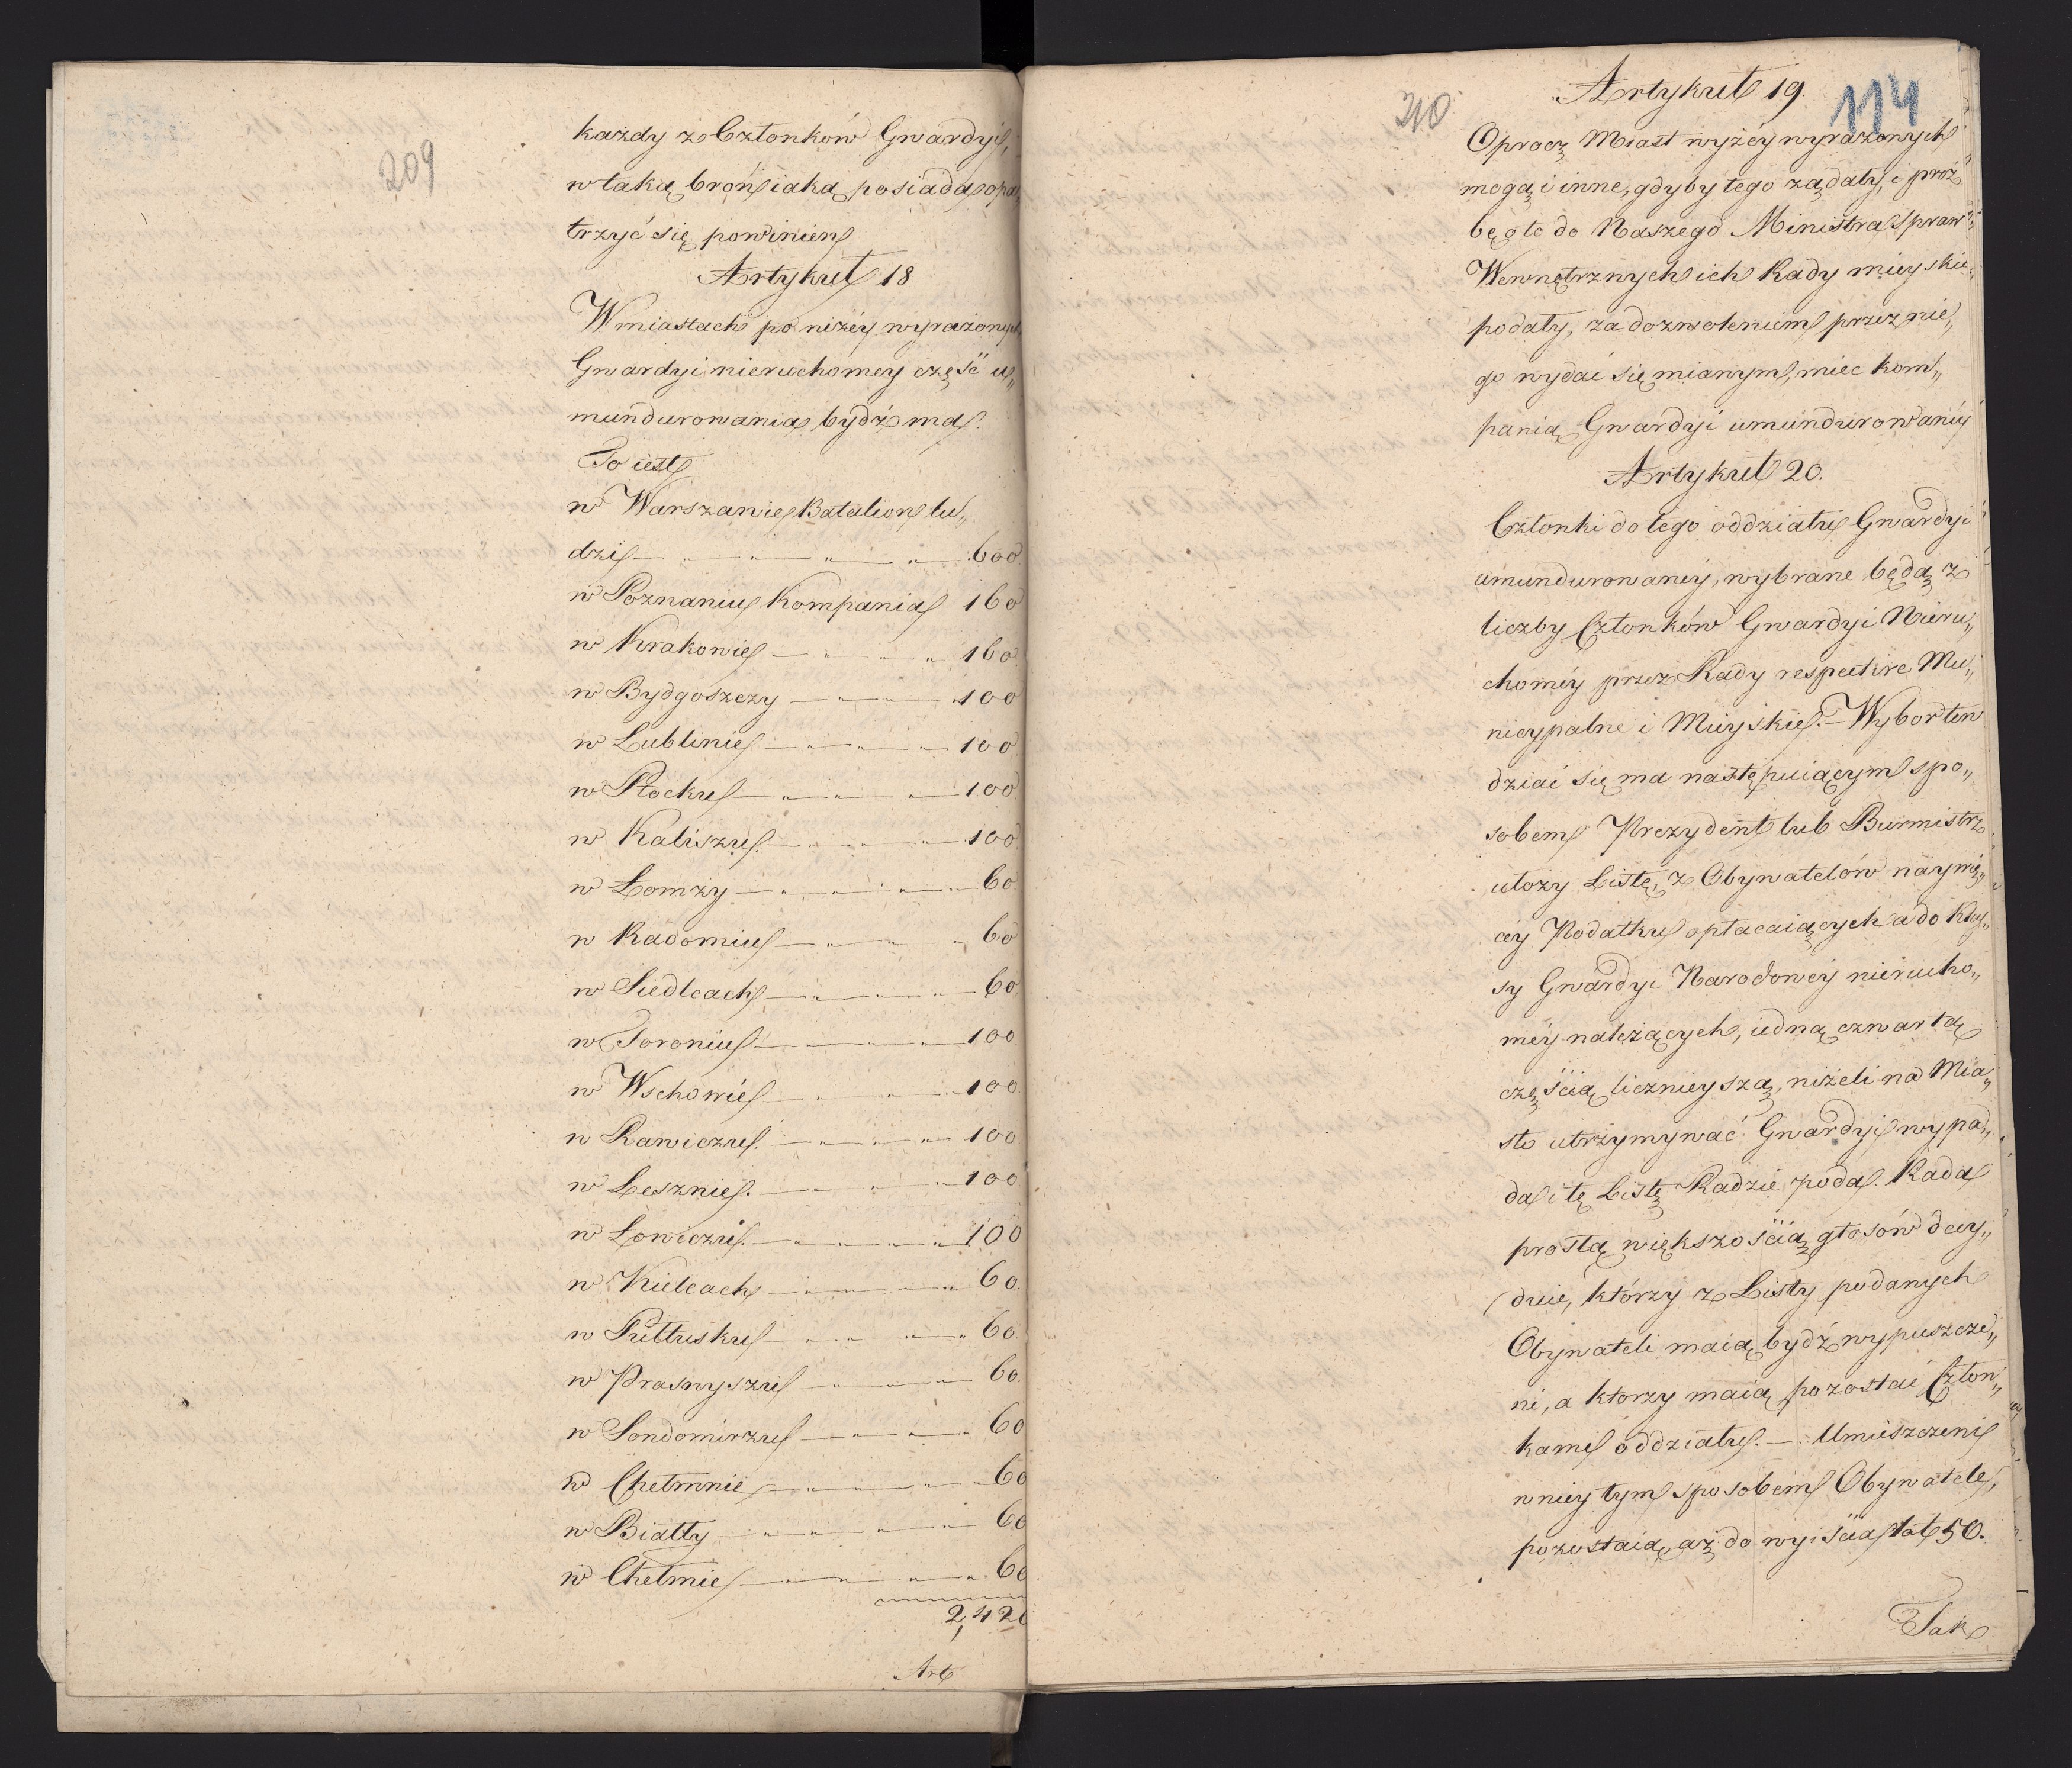 209
każdy z Członków Gwardyi,
w taką broń iaką posiada opa„
trzyć się powinien
Artykuł 18
W miastach poniżéy wyrażonych
Gwardyi nieruchomey część u„
mundurowania bydź ma.
To iest
w Warszawie Batalion lu„
dzi 600
w Poznaniu Kompania 160
w Krakowie 160
w Bydgoszczy 100
w Lublinie 100
w Płocku 100
w Kaliszu 100
w Łomży 60
w Radomiu 60
w Siedlcach 60
w Toroniu 100
w Wschowie 100
w Rawiczu 100
w Lesznie 100
w Łowiczu 100
w Kielcach 60
w Pułtusku 60
w Prasnyszu 60
w Sondomirzu 60
w Chełmnie 60
w Białły 60
w Chełmie 60
2,420
Art
210
114
Artykuł 19.
Oprocz Miast wyżéy wyrażonych
mogą i inne, gdyby tego żądały, i proź
bę o to do Naszego Ministra Spraw
Wewnętrznych ich Rady mieyskie
podały, za dozwoleniem przez nie„
go wydać się mianym, miec kom„
panią Gwardyi umundurowanéy
Artykuł 20.
Członki do tego oddziału Gwardyi
umundurowanéy, wybrane będą z
liczby Członków Gwardyi Nieru„
choméy przez Rady respective Mu„
nicypalne i Mieyskie. – Wybor ten
dziać się ma następuiącym spo„
sobem Prezydent lub Burmistrz
ułoży Listę, z Obywatelów naywię„
céy Podatku opłacaiących a do klas„
sy Gwardyi Narodowéy nierucho„
méy należących, iedną czwartą
częścią licznieyszą, niżeli na Mia„
sto utrzymywać Gwardyi wypa„
da i tę Listę Radzie poda. Rada
prostą większością głosów decy„
duie, którzy z Listy podanych
Obywateli maią bydź wypuszcze„
ni, a ktorzy maią pozostać Człon„
kami oddziału. – Umieszczeni
w niey tym sposobem Obywatele,
pozostaią, aż do wyiścia lat 50.
Tak